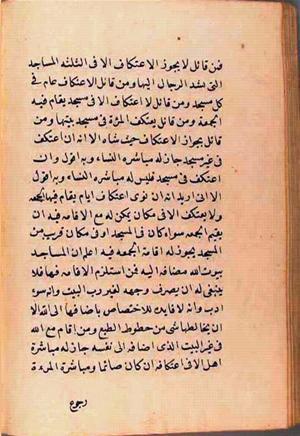 فمن قائل لا يجوز الاعتكاف الا فى الثلثة المساجد
التى تشد الرحال اليها ومن قائل الاعتكاف عام فى
كل مسجد ومن قائل لا اعتكاف الا فى مسجد يقام فيه
الجمعة ومن قائل يعتكف المرأة فى مسجد بيتها ومن
قائل يجوز الاعتكاف حيث شاء الا انه ان اعتكف
فى غير مسجد جاز له مباشرة النساء وبه اقول وان
اعتكف فى مسجد فليس له مباشرة النساء وبه اقول
الا انى اريد انه ان نوى اعتكاف ايام يقام فيها الجمعة
ولا يعتكف الا فى مكان يمكن له مع الاقامة فيه ان
يقيم الجمعة سواء كان فى المسجد او فى مكان قريب من
المسجد يجوز له اقامة الجمعة فيه اعلم ان المساجد
بيوت الله مضافة اليه فمن استلزم الاقامة فيها فلا
ينبغى له ان يصرف وجهه لغير رب البيت وانه سوء
ادب وانه لا فايدة للاختصاص باضافها الى الله الا
ان يخالطها شى من حظوظ الطبع ومن اقام مع الله
فى غير البيت الذى اضافه الى نفسه جاز له مباشرة
اهل الا فى اعتكافه ان كان صائما ومباشرة المرءة
رجوع